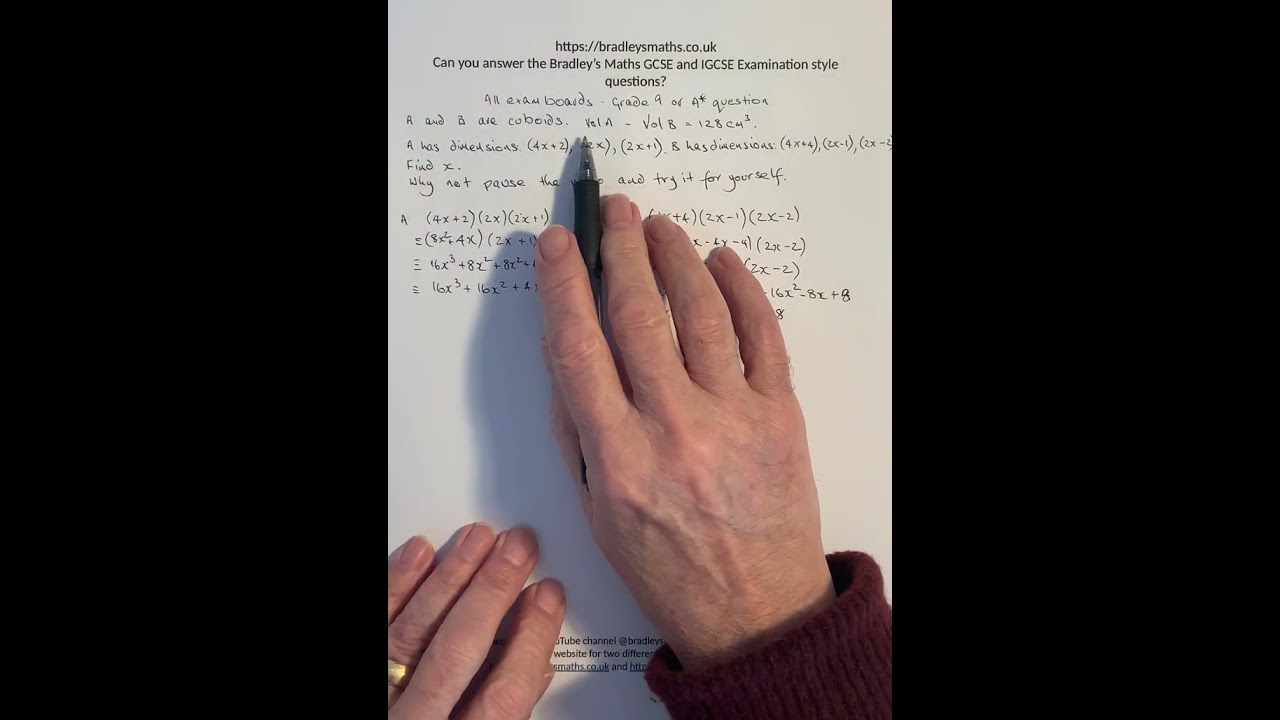 https://bradleysmaths.co.uk
Can you answer the Bradley's Maths GCSE and IGCSE Examination style
questions?
All exam boards - Grade 9 or A* question
A and B are cuboids. Vol A - Vol B = 128cm³.
A has dimensions: (4x+2), 2x), (2x+1). B has dimensions: (4x+4),(2x-1),(2x-2
Find x.
Why not pause the and try it for yourself.
A (4x+2)(2x)(2x+1) +4)(2x-1)(2x-2)
≡(8x²+4x)(2x+1 -4x-4)(2x-2)
≡ 16x³+8x²+8x²+ (2x-2)
≡ 16x³+16x²+4x -16x²-8x+8
8
Tube channel @bradleys
website for two differen
smaths.co.uk and http